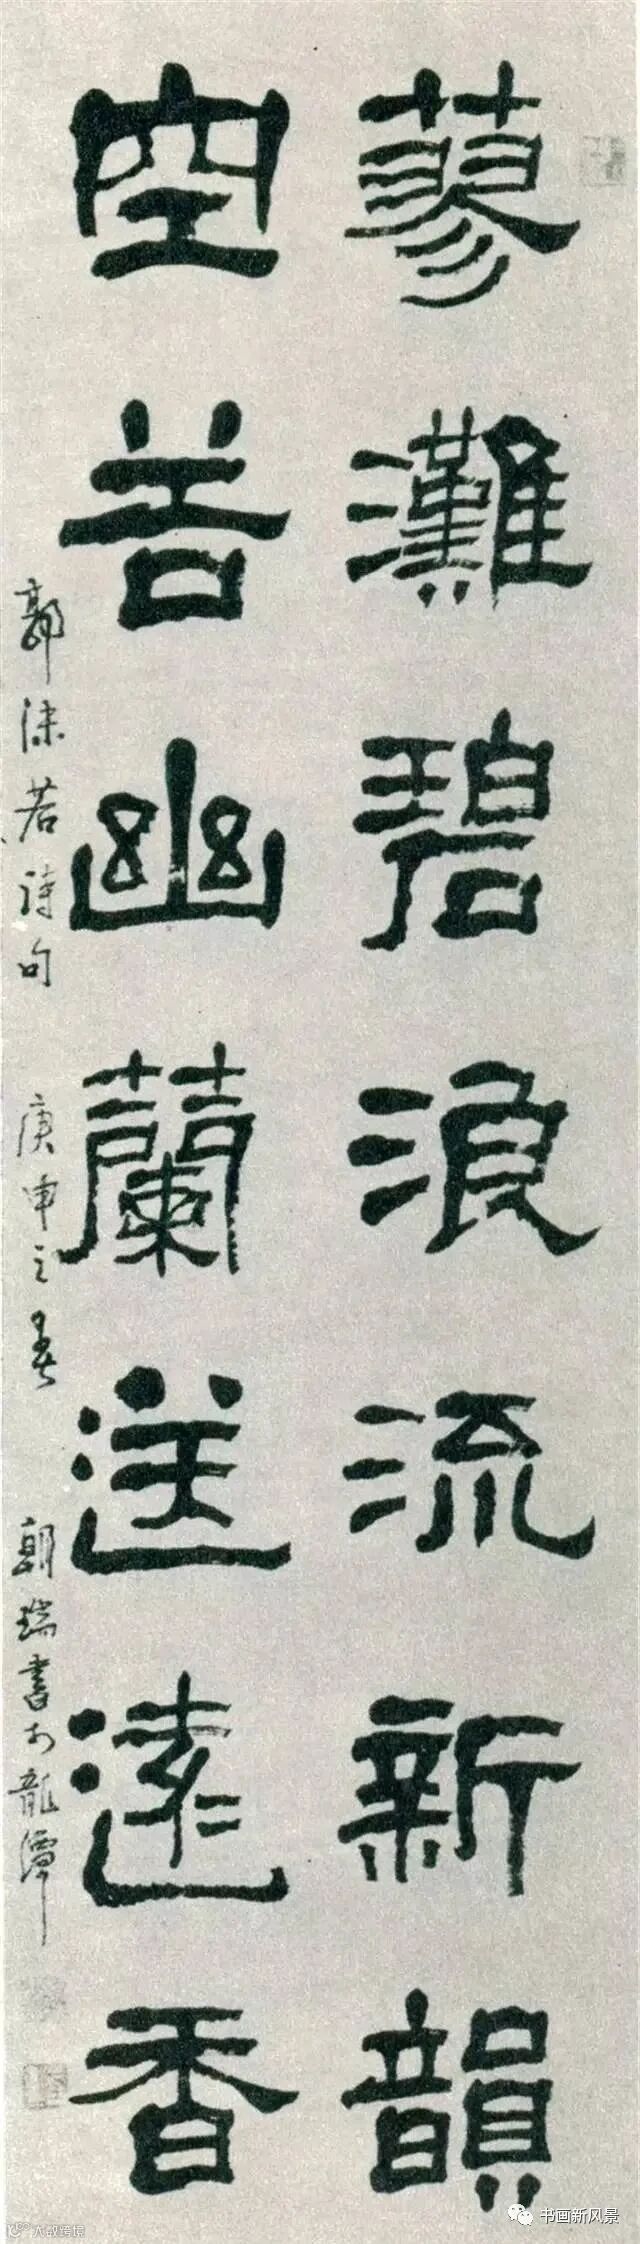 蓼灘碧浪流新韻
空谷幽蘭送遠香
郭沫若詩句 庚申之春 朝瑞書於龍潭
书画新风景
大数跨境